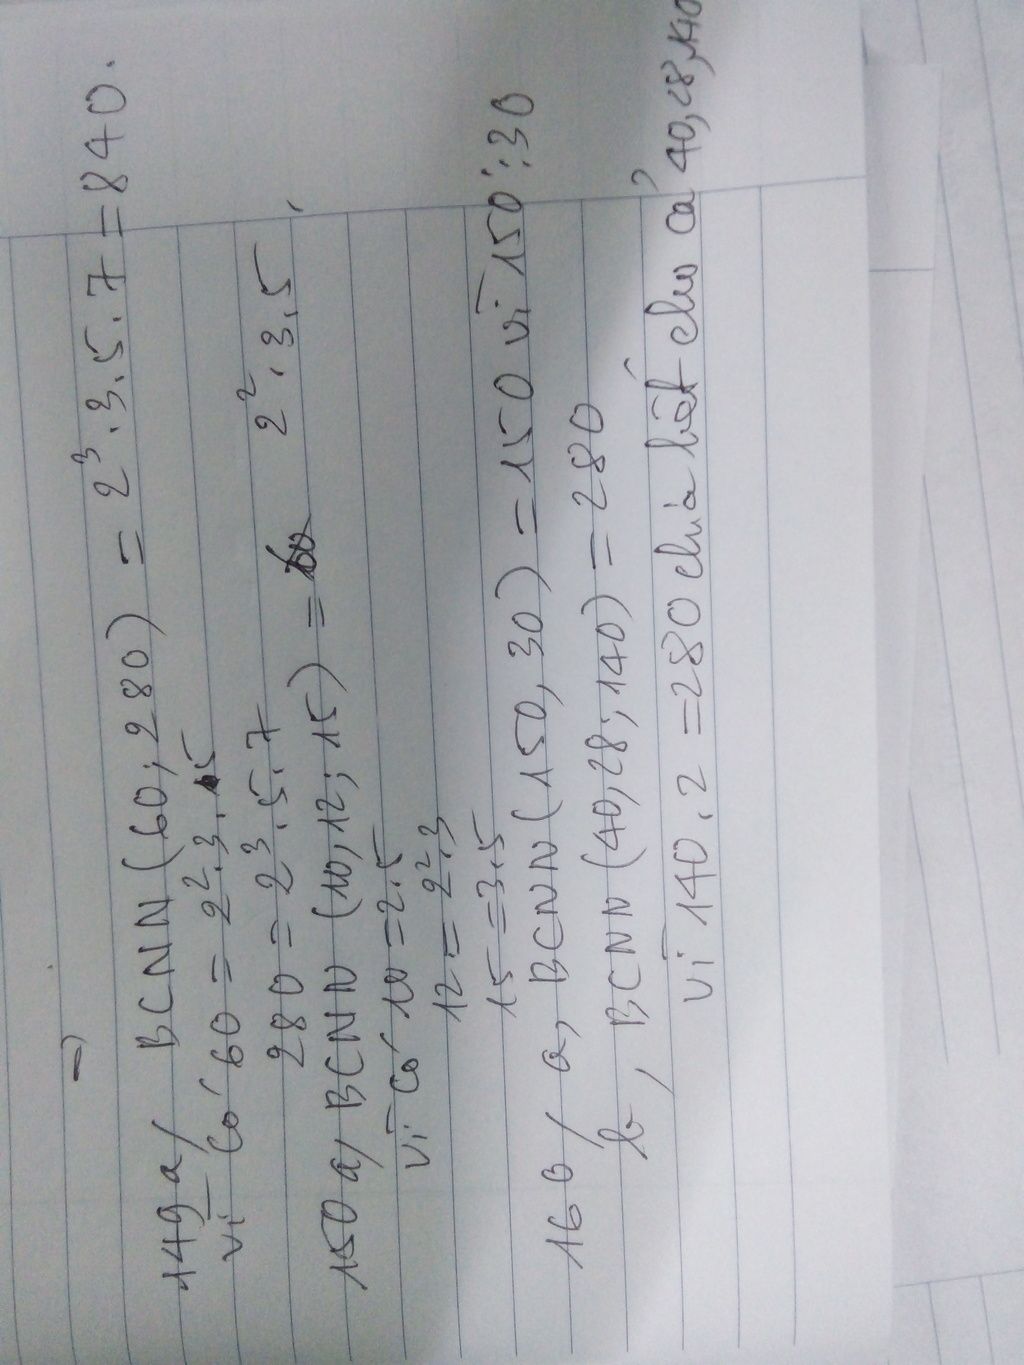 149 a/ BCNN (60, 280) = 2³.3.5.7 = 840.
Vì có 60 = 2².3.5
280 = 2³.5.7
150 a/ BCNN (10, 12; 15) = 60 2².3.5
Vì có 10 = 2.5
12 = 2².3
15 = 3.5
16 B/ a, BCNN (150, 30) = 150 vì 150 ⋮ 30
b, BCNN (40, 28; 140) = 280
vì 140.2 = 280 chia hết cho cả 40, 28, 140